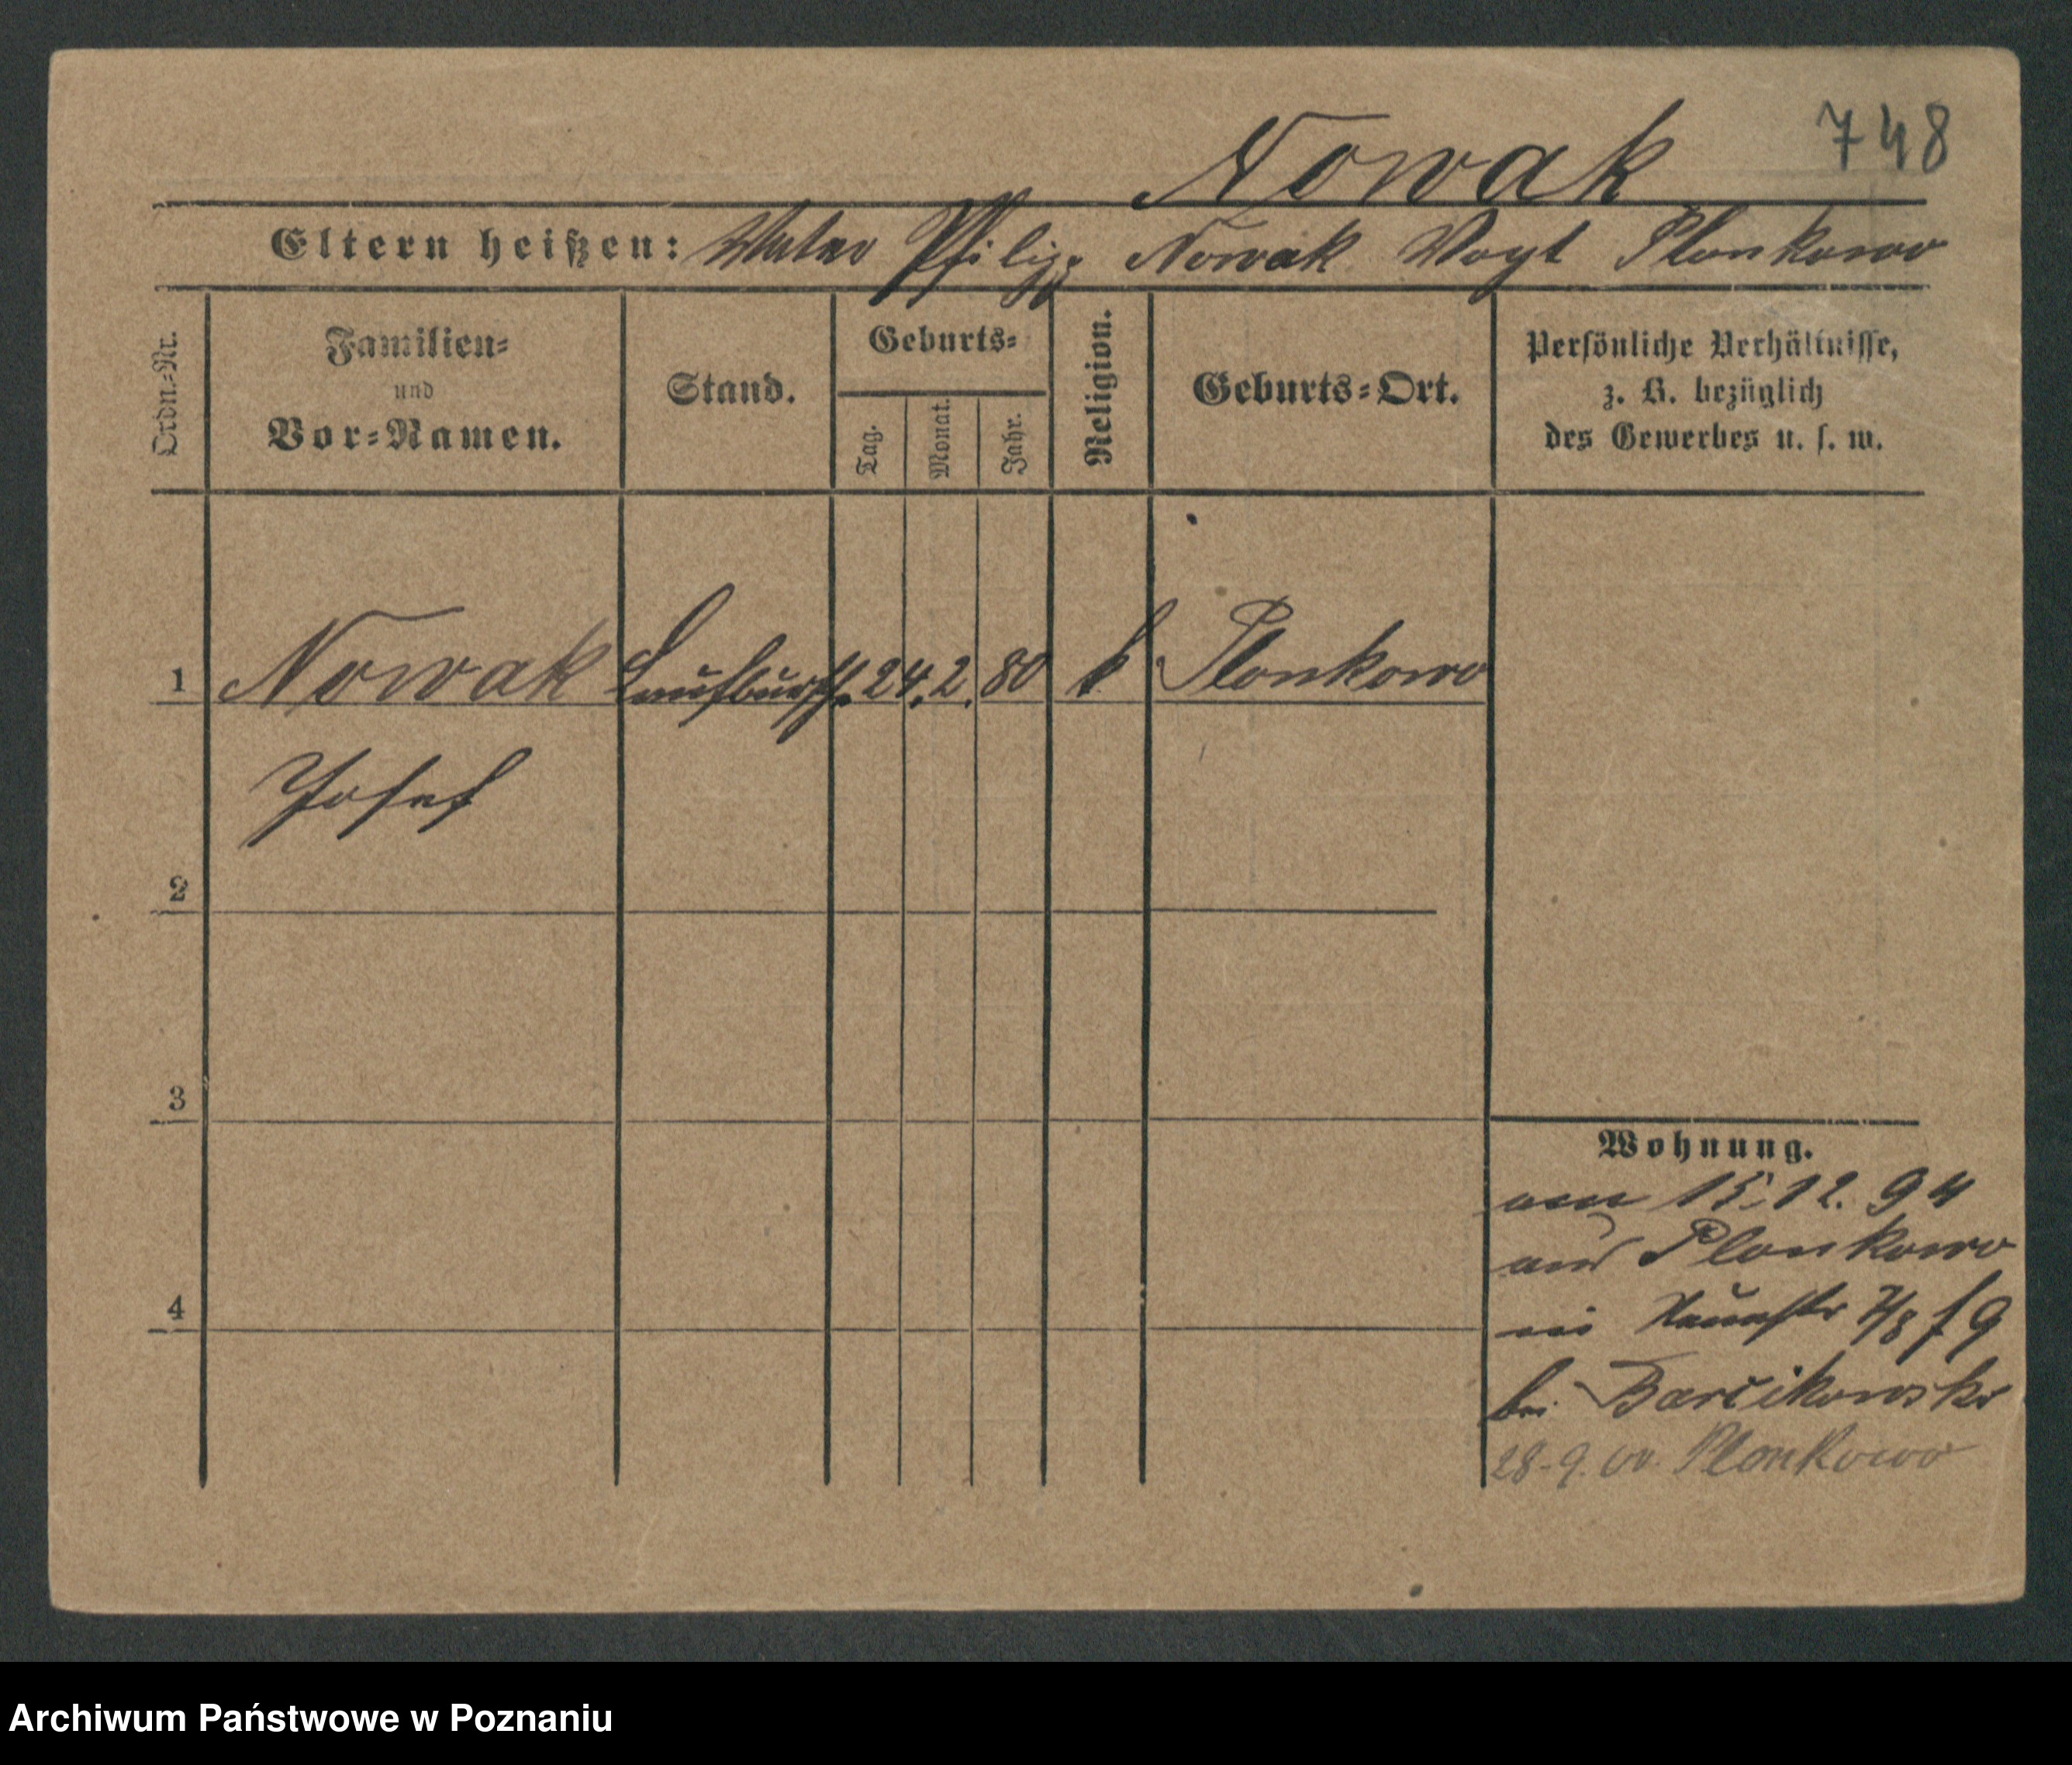 748
Nowak
Eltern heißen: Vater Philipp Nowak Vogt Plonkowo
Ordn.-Nr.
Familien-
und
Vor-Namen.
Stand.
Geburts-
Tag.
Monat.
Jahr.
Religion.
Geburts-Ort.
Persönliche Verhältnisse,
z. B. bezüglich
des Gewerbes u. s. w.
1 Nowak Laufbursch. 24. 2. 80 k Plonkowo
Josef
2
3
4
Wohnung.
am 15.12.94
aus Plonkowo
7/8 f 9
bei Barcikowski
28-9. Plonkowo
Archiwum Państwowe w Poznaniu